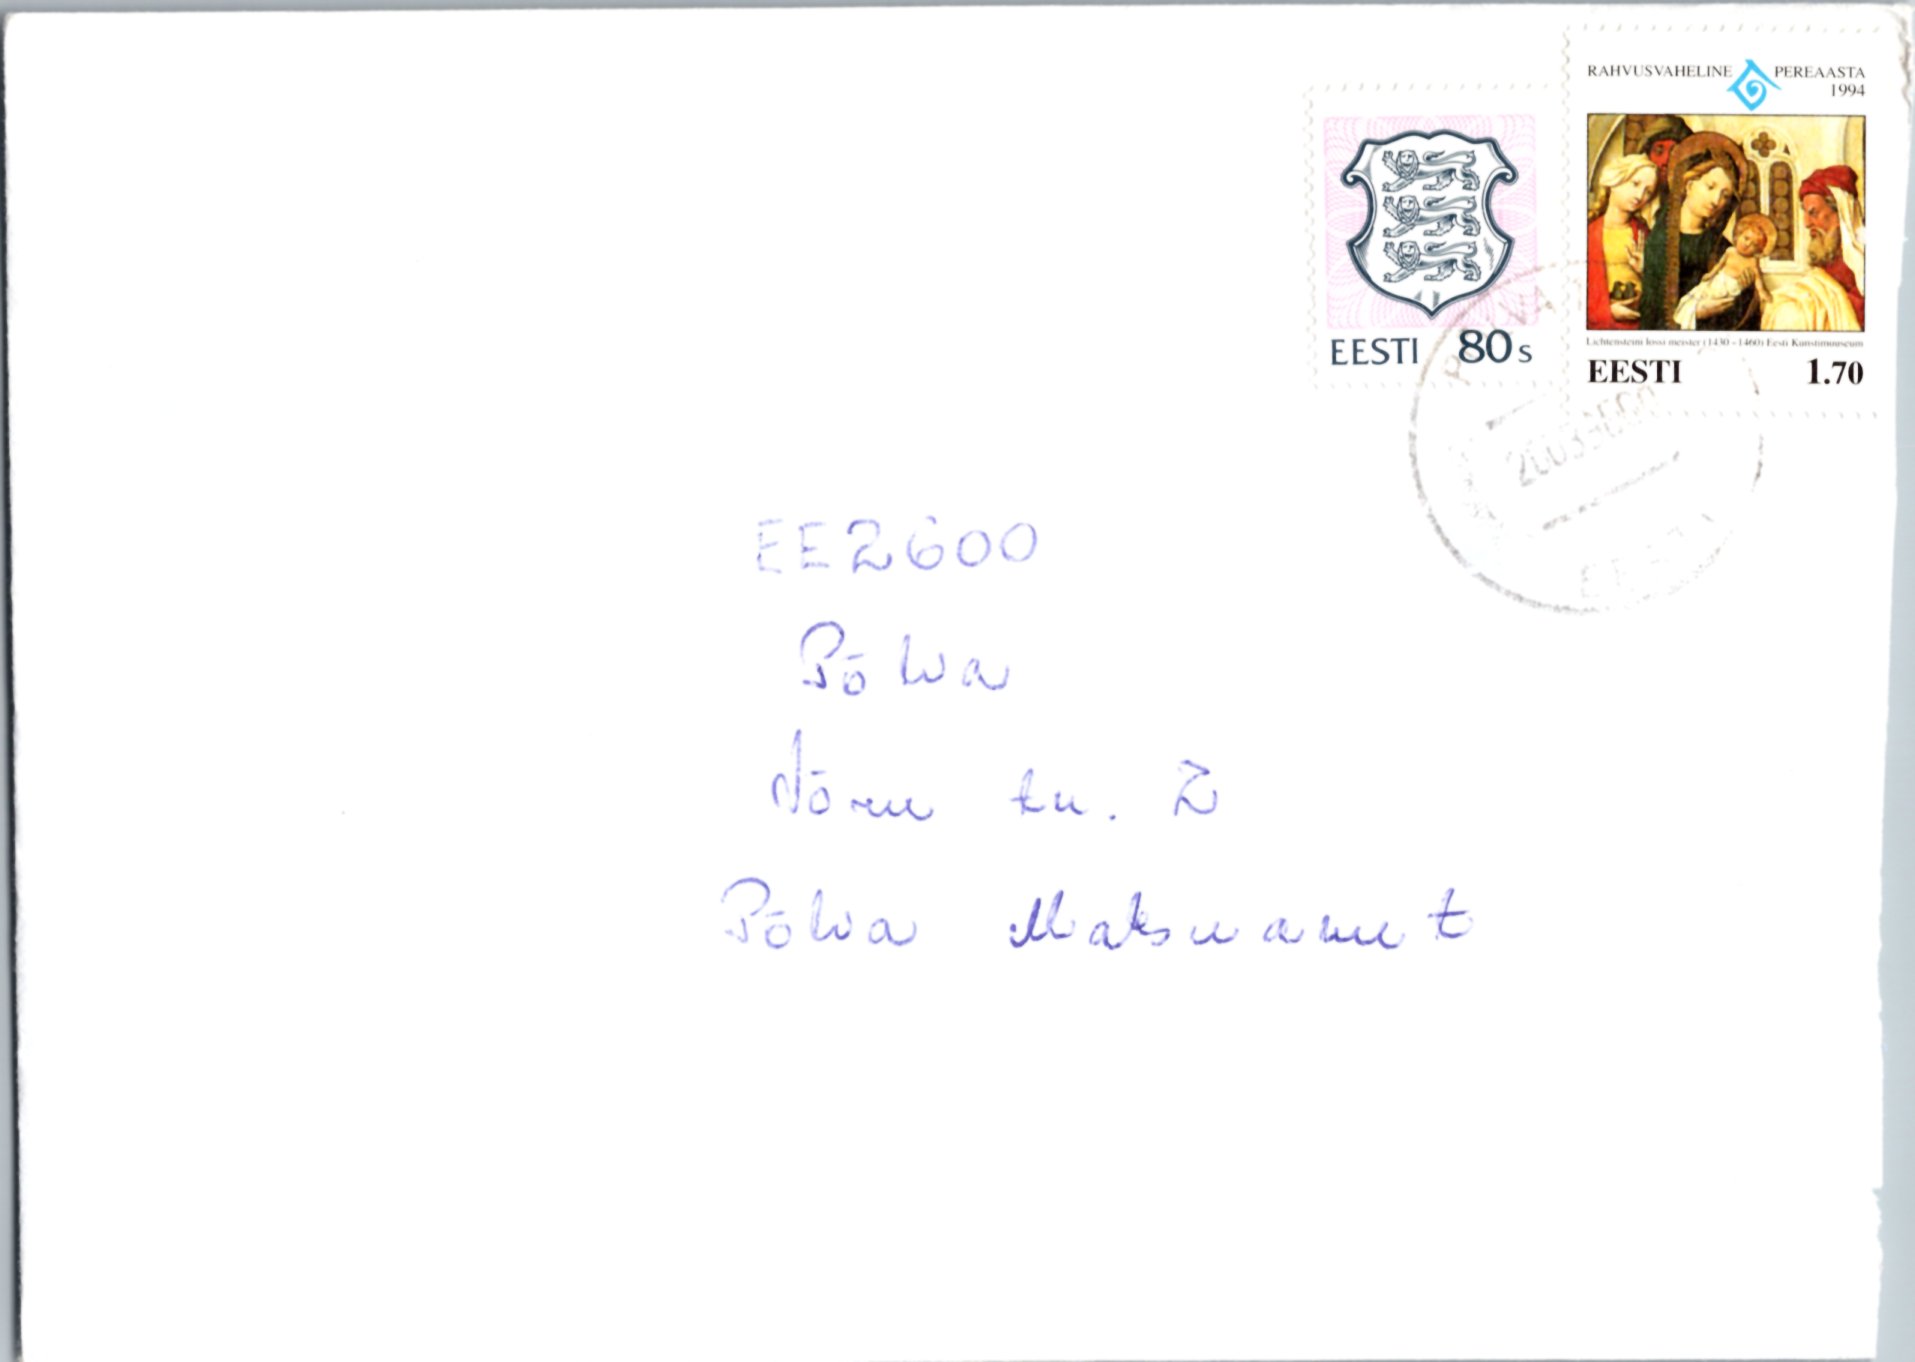 RAHVUSVAHELINE PEREAASTA
1994
Lichtensteini lossi meister (1430 - 1460) Eesti Kunstimuuseum
EESTI 1.70
EESTI 80s
EESTI
EE2600
Põlva
Võru tn. 2
Põlva Maksuamet